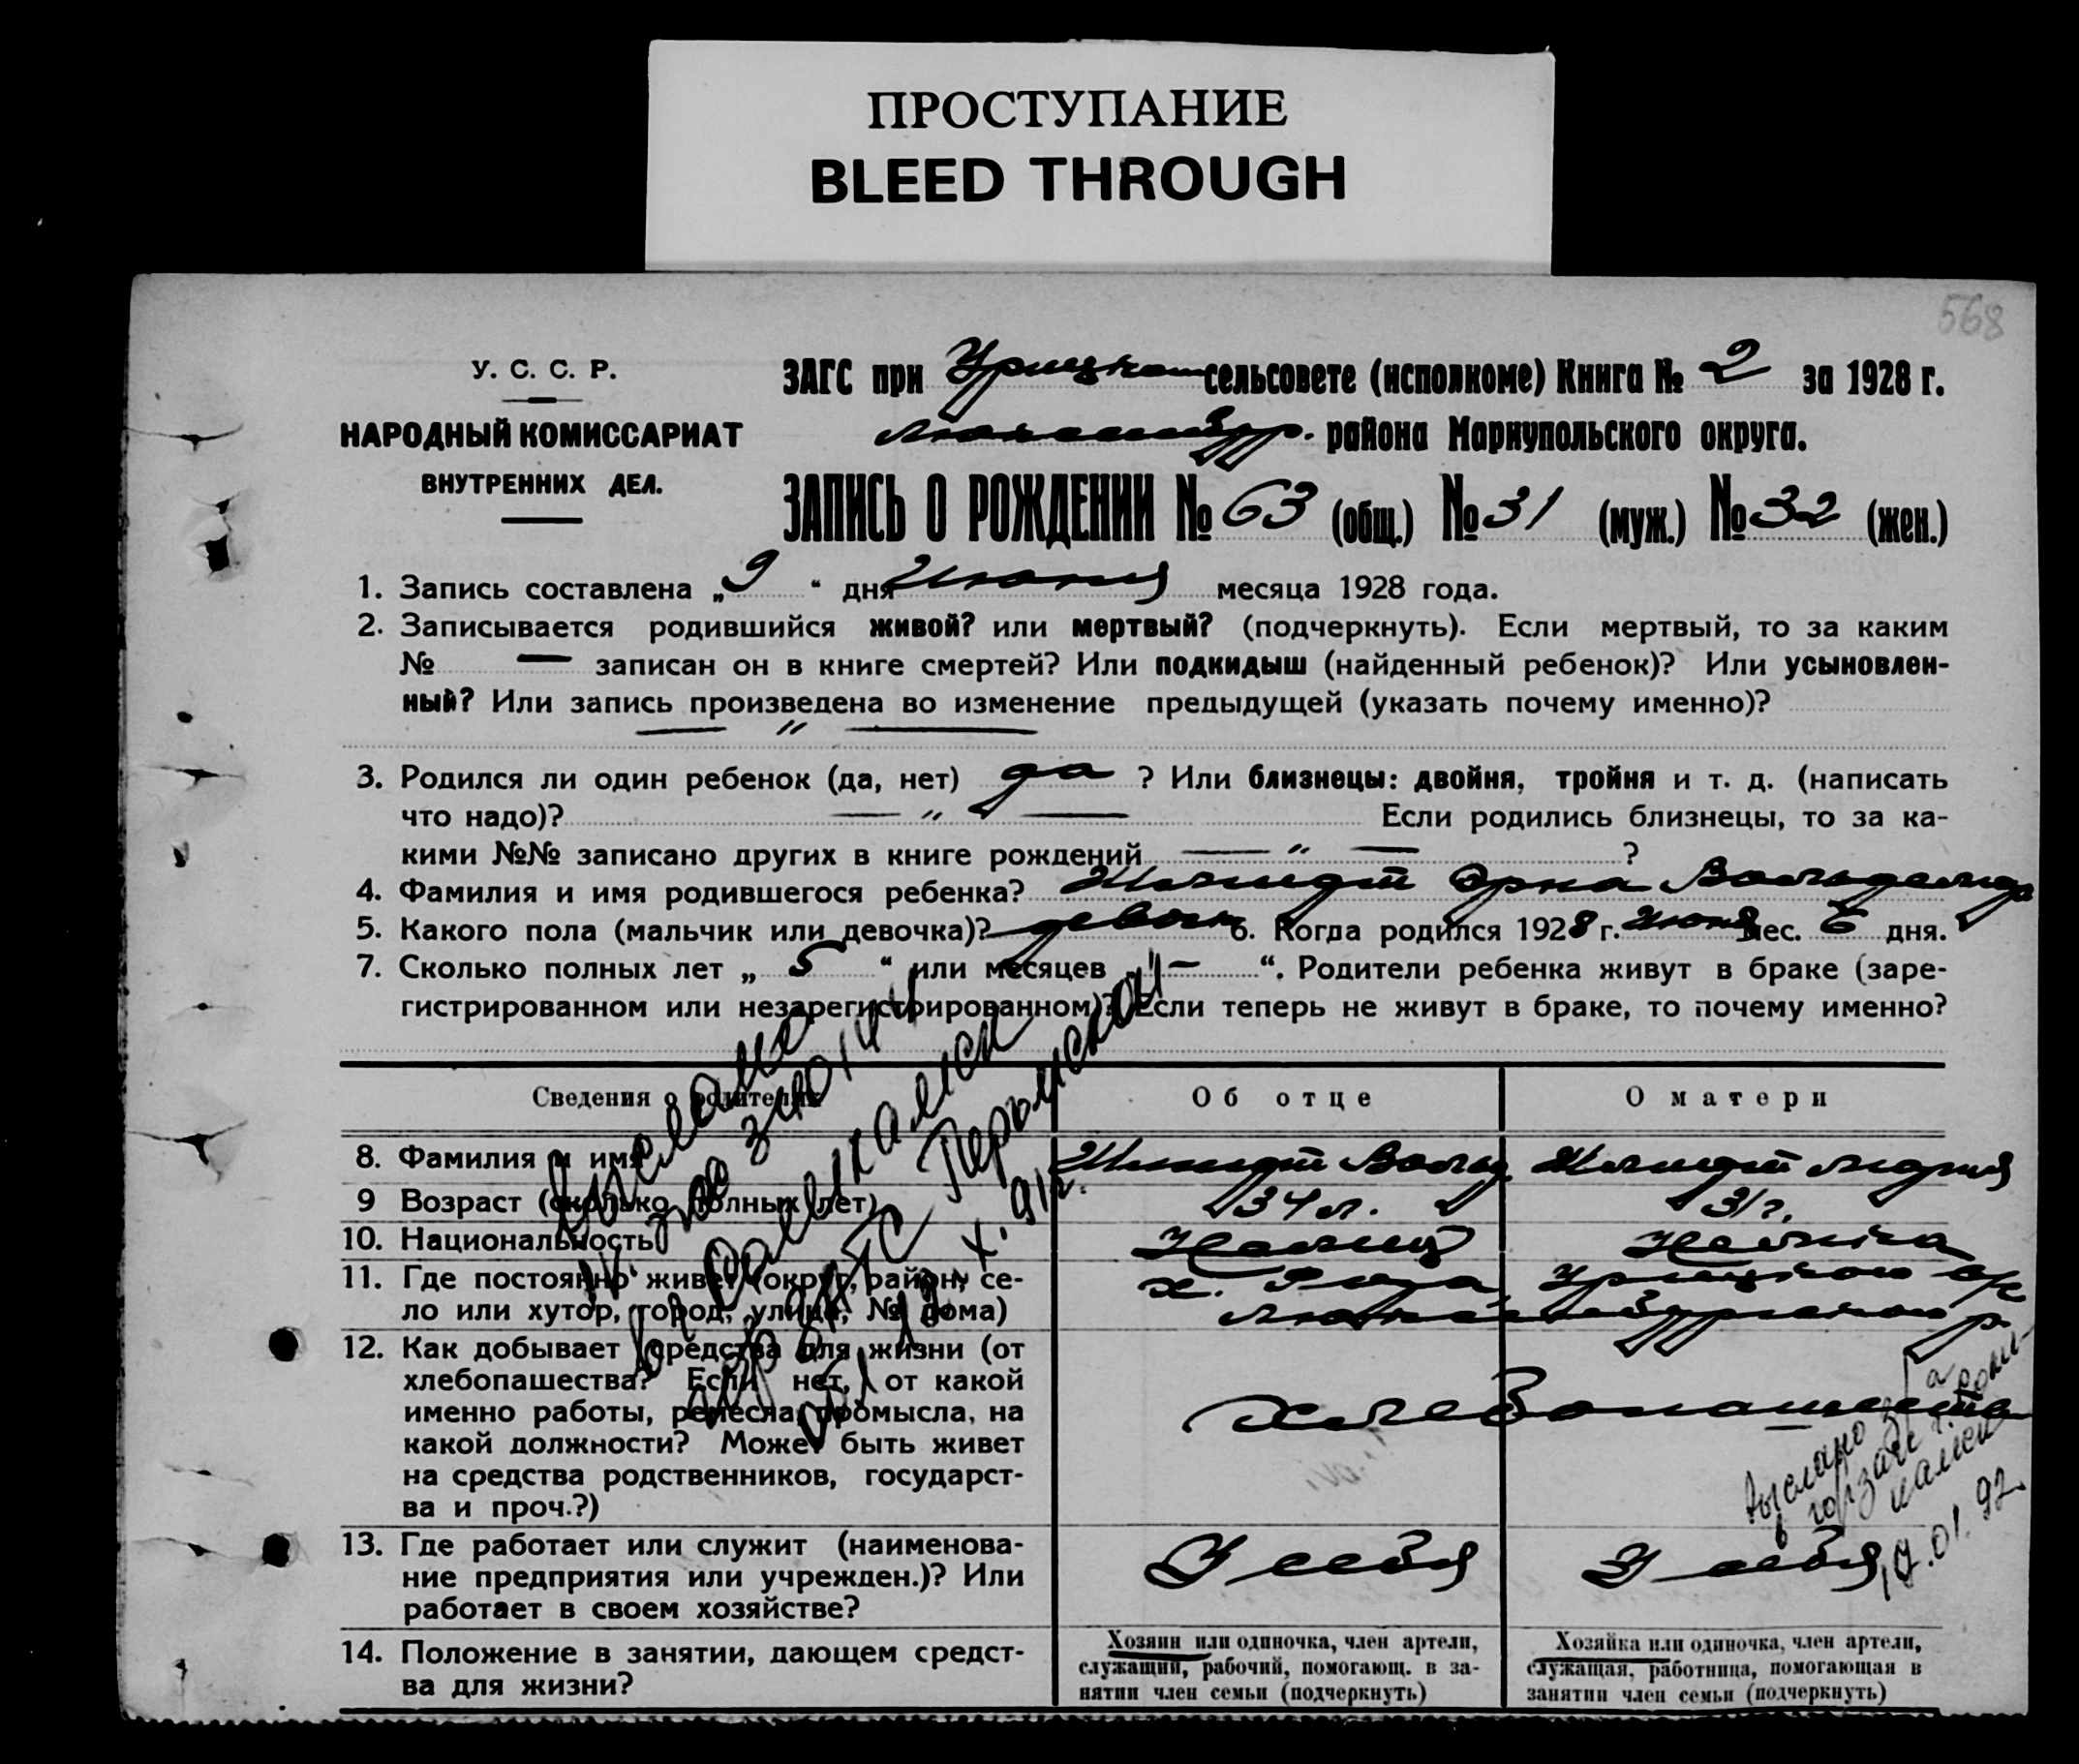 ПРОСТУПАНИЕ
BLEED THROUGH
568
У. С. С. Р.
НАРОДНЫЙ КОМИССАРИАТ
ВНУТРЕННИХ ДЕЛ.
ЗАГС при Урицком сельсовете (исполкоме) Книга № 2 за 1928 г.
района Мариупольского округа.
ЗАПИСЬ О РОЖДЕНИИ № 63 (общ.) № 31 (муж.) № 32 (жен.)
1. Запись составлена „ 9 “ дня Июня месяца 1928 года.
2. Записывается родившийся живой? или мертвый? (подчеркнуть). Если мертвый, то за каким
№ — записан он в книге смертей? Или подкидыш (найденный ребенок)? Или усыновлен-
ный? Или запись произведена во изменение предыдущей (указать почему именно)?
— „ —
3. Родился ли один ребенок (да, нет) да ? Или близнецы: двойня, тройня и т. д. (написать
что надо)? — „ — Если родились близнецы, то за ка-
кими №№ записано других в книге рождений — „ — ?
4. Фамилия и имя родившегося ребенка? Шмидт Эрна
5. Какого пола (мальчик или девочка)? девочк 6. Когда родился 1928 г. Июня мес. 6 дня.
7. Сколько полных лет „ 5 “ или месяцев „ — “. Родители ребенка живут в браке (заре-
гистрированном или незарегистрированном)? Если теперь не живут в браке, то почему именно?
Сведения о родителях
Об отце
О матери
8. Фамилия и имя
Шмидт Вольд.
Шмидт Мария
9 Возраст (сколько полных лет)
34 л.
31 г.
10. Национальность
Немец
Немка
11. Где постоянно живет (округ, район, се-
ло или хутор, город, улица, № дома)
х. Роза Урицкого с/с
12. Как добывает средства для жизни (от
хлебопашества? Если нет, от какой
именно работы, ремесла, промысла, на
какой должности? Может быть живет
на средства родственников, государст-
ва и проч.?)
Хлебопашеством
13. Где работает или служит (наименова-
ние предприятия или учрежден.)? Или
работает в своем хозяйстве?
У себя
У себя
14. Положение в занятии, дающем средст-
ва для жизни?
Хозяин или одиночка, член артели,
служащий, рабочий, помогающ. в за-
нятии член семьи (подчеркнуть)
Хозяйка или одиночка, член артели,
служащая, работница, помогающая в
занятии член семьи (подчеркнуть)
Выслано
в
Пермской
X. 91 г.
выслано
в горзагс г.
17.01.92